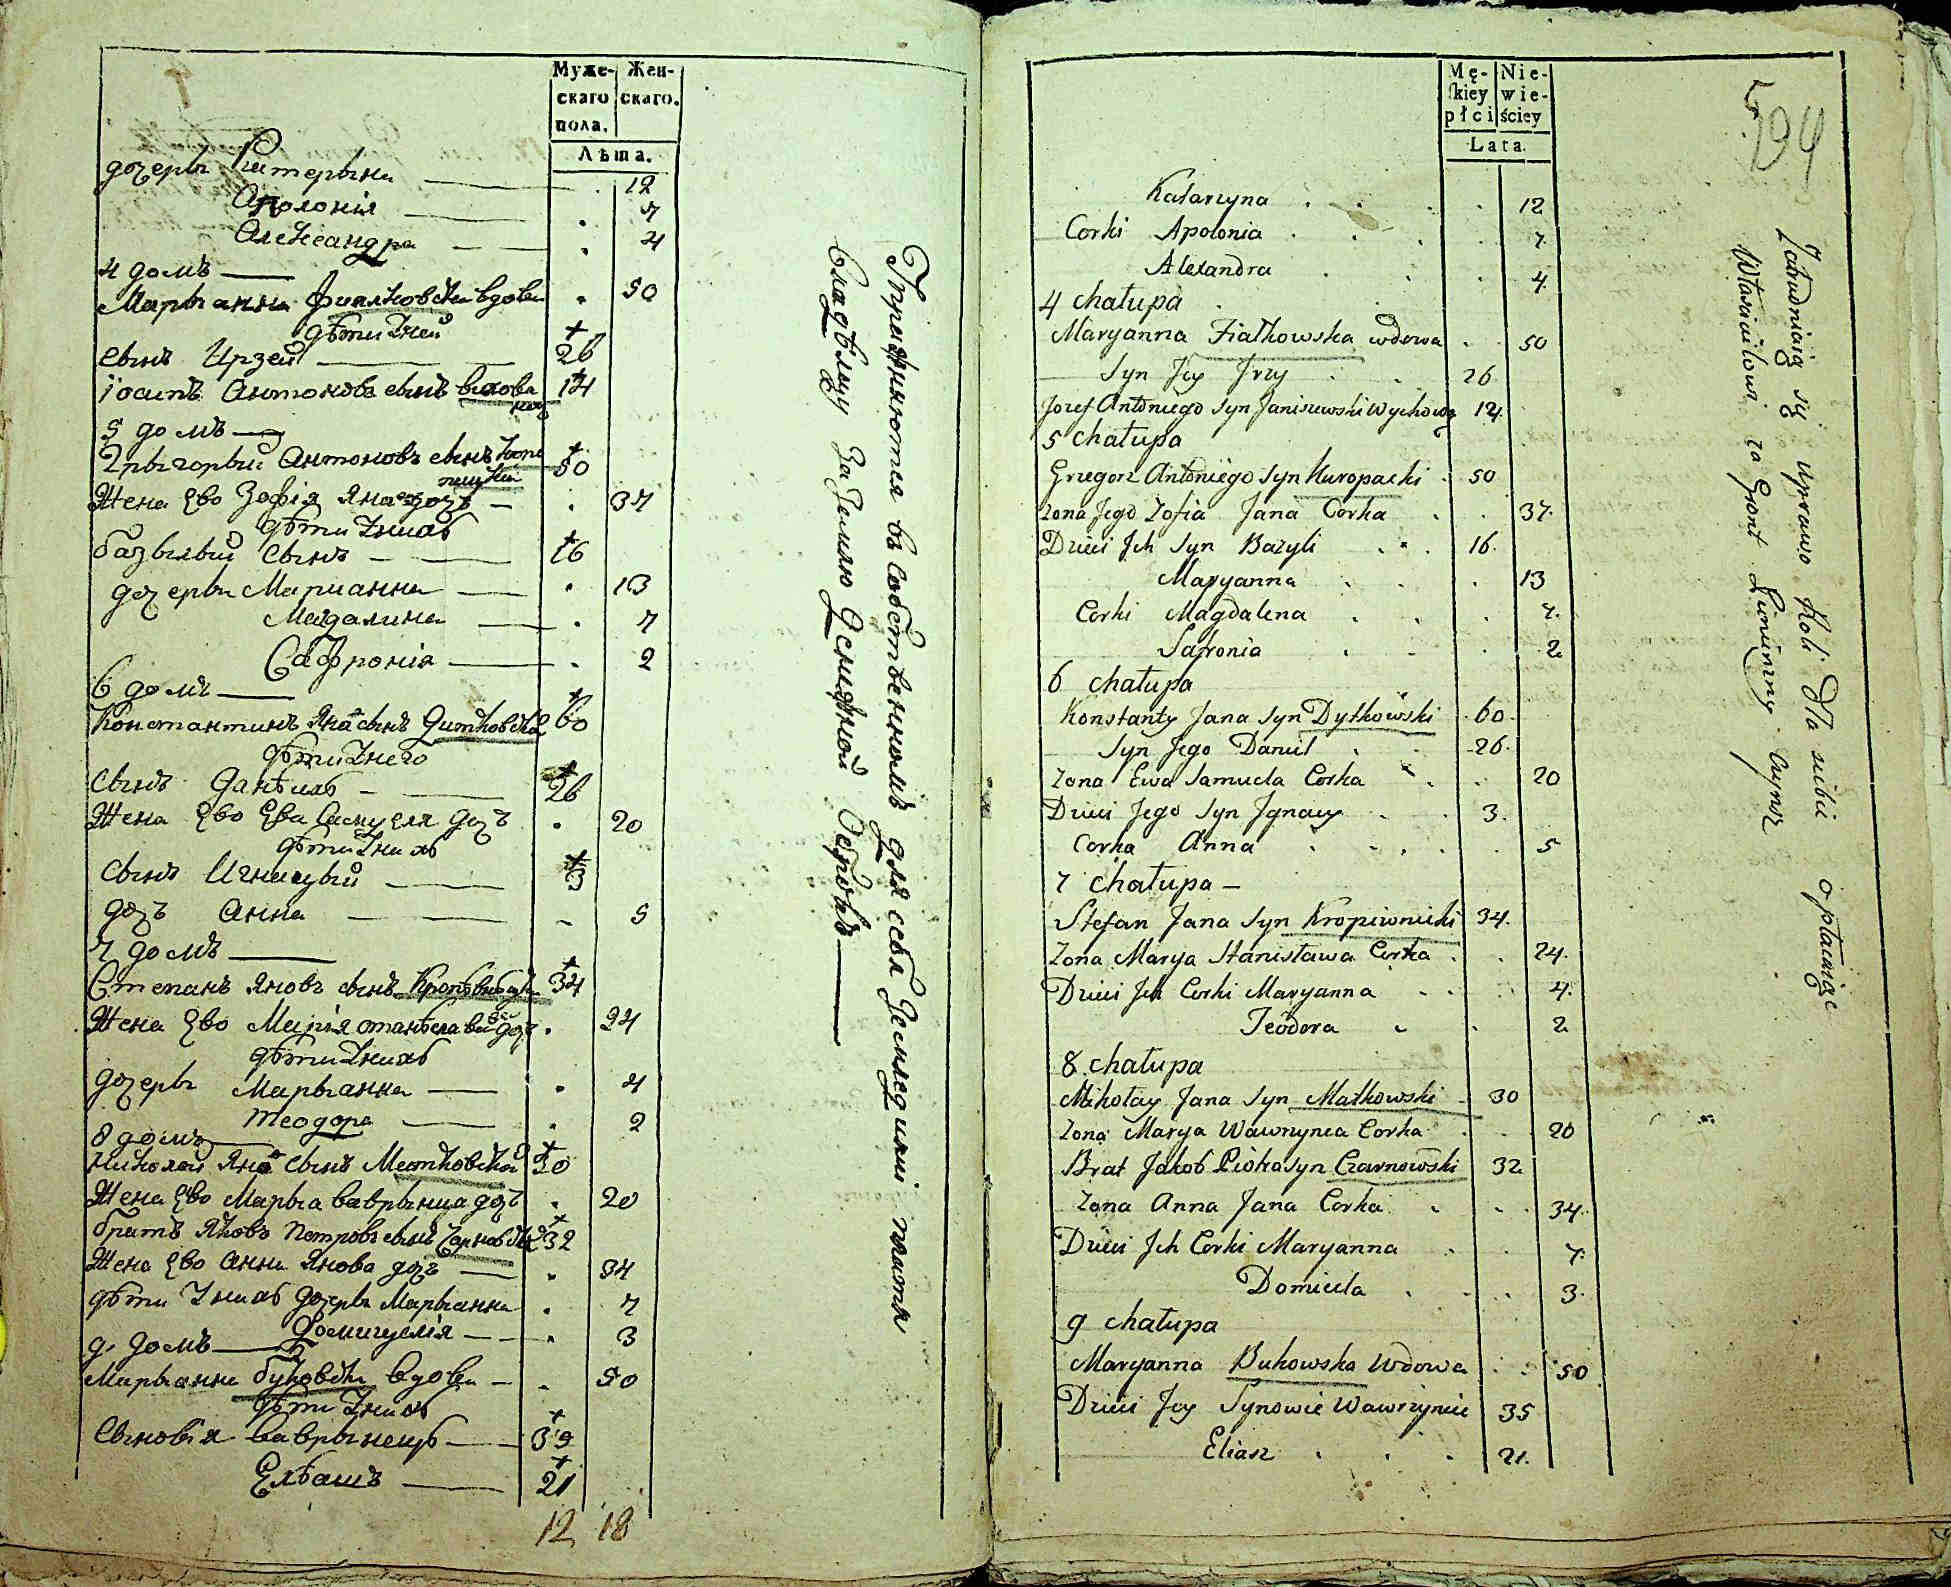 Муже-
скаго
пола.
Жен-
скаго.
Лѣта.
дочеры Катерына 12
Аполонія 7
Александра 4
4 домъ
Марыанна Фиалковска вдова 50
дѣти Ўней
сынъ Ирзей 26
іосипъ Антоновъ сынъ 14
5 домъ
Грыгорый Антоновъ сынъ 50
Жена Ево Зофія Яна дочъ 37
дѣти Ўнихъ
базылый сынъ 16
дочеры Марианна 13
Магдалина 7
Сафронія 2
6 домъ
Константинъ Яна сынъ Дитковскій 60
дѣти Ўнего
сынъ Данѣилъ 26
Жена Ево Ева Самуеля дочъ 20
дѣти Ўнихъ
сынъ Игнацый 3
дочъ Анна 5
7 домъ
Степанъ Яновъ сынъ 34
Жена Ево Марія дочъ 24
дѣти Ўнихъ
дочеры Марыанна 4
Теодора 2
8 домъ
Николай Яна сынъ Матковскій 30
Жена Ево Марыа Ваврынца дочъ 20
братъ Яковъ Петровъ сынъ 32
Жена Ево Анна Янова дочъ 34
дѣти Ўнихъ дочеры Марыанна 7
Домицелія 3
9 домъ
Марыанна Буковска вдова 50
дѣти Ўнихъ
Сыновья Ваврынецъ 35
Еліашъ 21
12 18
въ собственномъ для себя
За Землю
Mę-
skiey
płci
Nie-
wie-
ściey
Lata
594
Katarzyna 12
Corki Apolonia 7
Alexandra 4
4 chałupa
Maryanna Fiałkowska wdowa 50
Syn Jey Jrzy 26
Jozef Antoniego Syn Janiszewski Wychowa 14
5 chałupa
Grzegorz Antoniego Syn Kuropacki 50
Zona Jego Zofia Jana Corka 37
Dzieci Jch Syn Bazyli 16
Maryanna 13
Corki Magdalena 7
Safronia 2
6 chałupa
Konstanty Jana Syn Dytkowski 60
Syn Jego Daniel 26
Zona Ewa Samuela Corka 20
Dzieci Jego Syn Jgnacy 3
Corka Anna 5
7 chałupa
Stefan Jana Syn Kropiwnicki 34
Zona Marya Stanisława Corka 24
Dzieci Jch Corki Maryanna 4
Teodora 2
8 chałupa
Mikołay Jana Syn Matkowski 30
Zona Marya Wawrzynca Corka 20
Brat Jakob Piotra Syn Czarnowski 32
Zona Anna Jana Corka 34
Dzieci Jch Corki Maryanna 7
Domicela 3
9 chałupa
Maryanna Bukowska Wdowa 50
Dzieci Jey Synowie Wawrzyniec 35
Eliasz 21
Zatrudniaią się uprawo Roli Dla siebie opłacaiąc
Właścicielowi za Grunt Czynsz